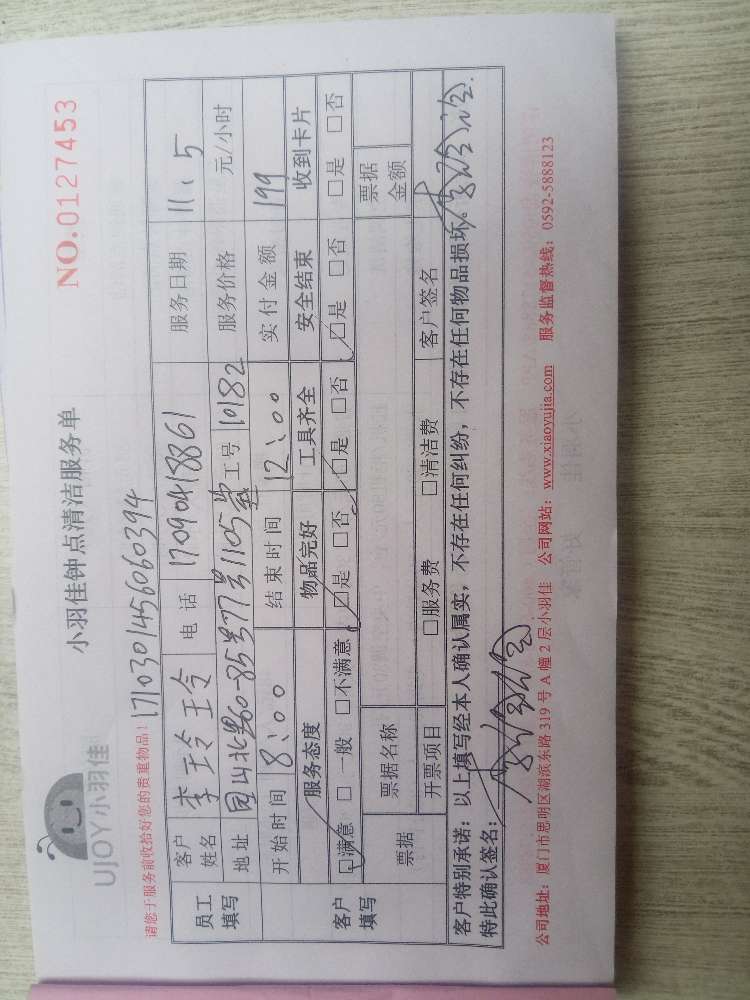 UJOY小羽佳
小羽佳钟点清洁服务单
NO.0127453
请您于服务前收拾好您的贵重物品!
1710301456060394
员工填写
客户姓名 李玲玲 电话 17090418861 服务日期 11.5
地址 园山北里60-85号77号1105室 工号 10182 服务价格 元/小时
开始时间 8:00 结束时间 12:00 实付金额 199
客户填写
服务态度 物品完好 工具齐全 安全结束 收到卡片
☑满意 □一般 □不满意 ☑是 □否 ☑是 □否 ☑是 □否 □是 □否
票据 票据名称 票据金额
开票项目 □服务费 □清洁费 客户签名
客户特别承诺:以上填写经本人确认属实,不存在任何纠纷,不存在任何物品损坏。
特此确认签名:
公司地址:厦门市思明区湖滨东路 319 号 A 幢 2 层小羽佳 公司网站:www.xiaoyujia.com 服务监督热线:0592-5888123